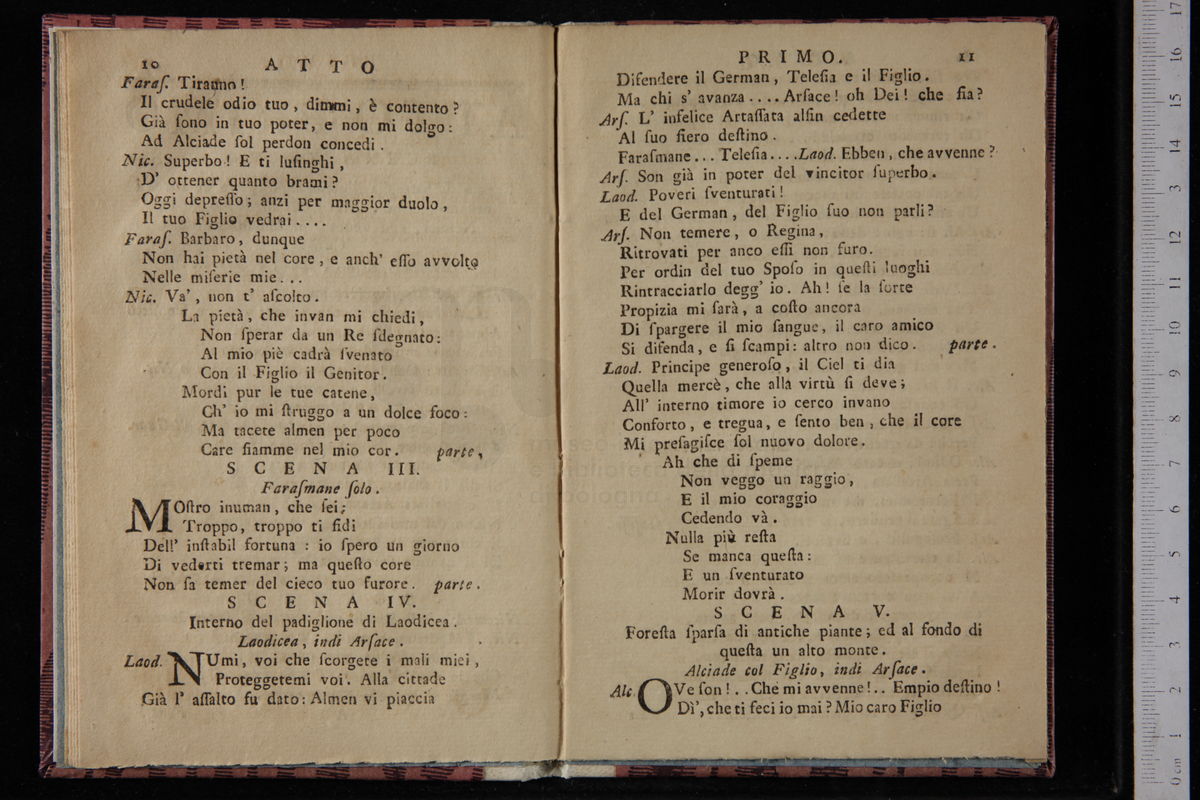 10 ATTO
Faraſ. Tiranno!
Il crudele odio tuo, dimmi, è contento?
Già ſono in tuo poter, e non mi dolgo:
Ad Alciade ſol perdon concedi.
Nic. Superbo! E ti luſinghi,
D' ottener quanto brami?
Oggi depreſſo; anzi per maggior duolo,
Il tuo Figlio vedrai....
Faraſ. Barbaro, dunque
Non hai pietà nel core, e anch' eſſo avvolto
Nelle miſerie mie...
Nic. Va', non t' aſcolto.
La pietà, che invan mi chiedi,
Non ſperar da un Re ſdegnato:
Al mio piè cadrà ſvenato
Con il Figlio il Genitor.
Mordi pur le tue catene,
Ch' io mi ſtruggo a un dolce foco:
Ma tacete almen per poco
Care fiamme nel mio cor. parte,
SCENA III.
Faraſmane ſolo.
MOſtro inuman, che ſei;
Troppo, troppo ti fidi
Dell' inſtabil fortuna : io ſpero un giorno
Di vederti tremar; ma queſto core
Non ſa temer del cieco tuo furore. parte.
SCENA IV.
Interno del padiglione di Laodicea.
Laodicea, indi Arſace.
Laod. NUmi, voi che ſcorgete i mali miei,
Proteggetemi voi. Alla cittade
Già l' aſſalto fu dato: Almen vi piaccia
PRIMO. 11
Difendere il German, Teleſia e il Figlio.
Ma chi s' avanza.... Arſace! oh Dei! che fia?
Arſ. L' infelice Artaſſata alfin cedette
Al ſuo fiero deſtino.
Faraſmane... Teleſia.... Laod. Ebben, che avvenne?
Arſ. Son già in poter del vincitor ſuperbo.
Laod. Poveri ſventurati!
E del German, del Figlio ſuo non parli?
Arſ. Non temere, o Regina,
Ritrovati per anco eſſi non furo.
Per ordin del tuo Spoſo in queſti luoghi
Rintracciarlo degg' io. Ah! ſe la ſorte
Propizia mi ſarà, a coſto ancora
Di ſpargere il mio ſangue, il caro amico
Si difenda, e ſi ſcampi: altro non dico. parte.
Laod. Principe generoſo, il Ciel ti dia
Quella mercè, che alla virtù ſi deve;
All' interno timore io cerco invano
Conforto, e tregua, e ſento ben, che il core
Mi preſagiſce ſol nuovo dolore.
Ah che di ſpeme
Non veggo un raggio,
E il mio coraggio
Cedendo và.
Nulla più reſta
Se manca queſta:
E un ſventurato
Morir dovrà.
SCENA V.
Foreſta ſparſa di antiche piante; ed al fondo di
queſta un alto monte.
Alciade col Figlio, indi Arſace.
Alc. OVe ſon!.. Che mi avvenne!.. Empio deſtino!
Dì', che ti feci io mai? Mio caro Figlio